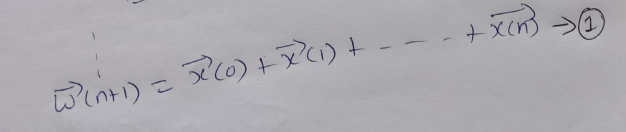 w⃗(n+1) = x⃗(0) + x⃗(1) + - - - - + x⃗(n) → ①